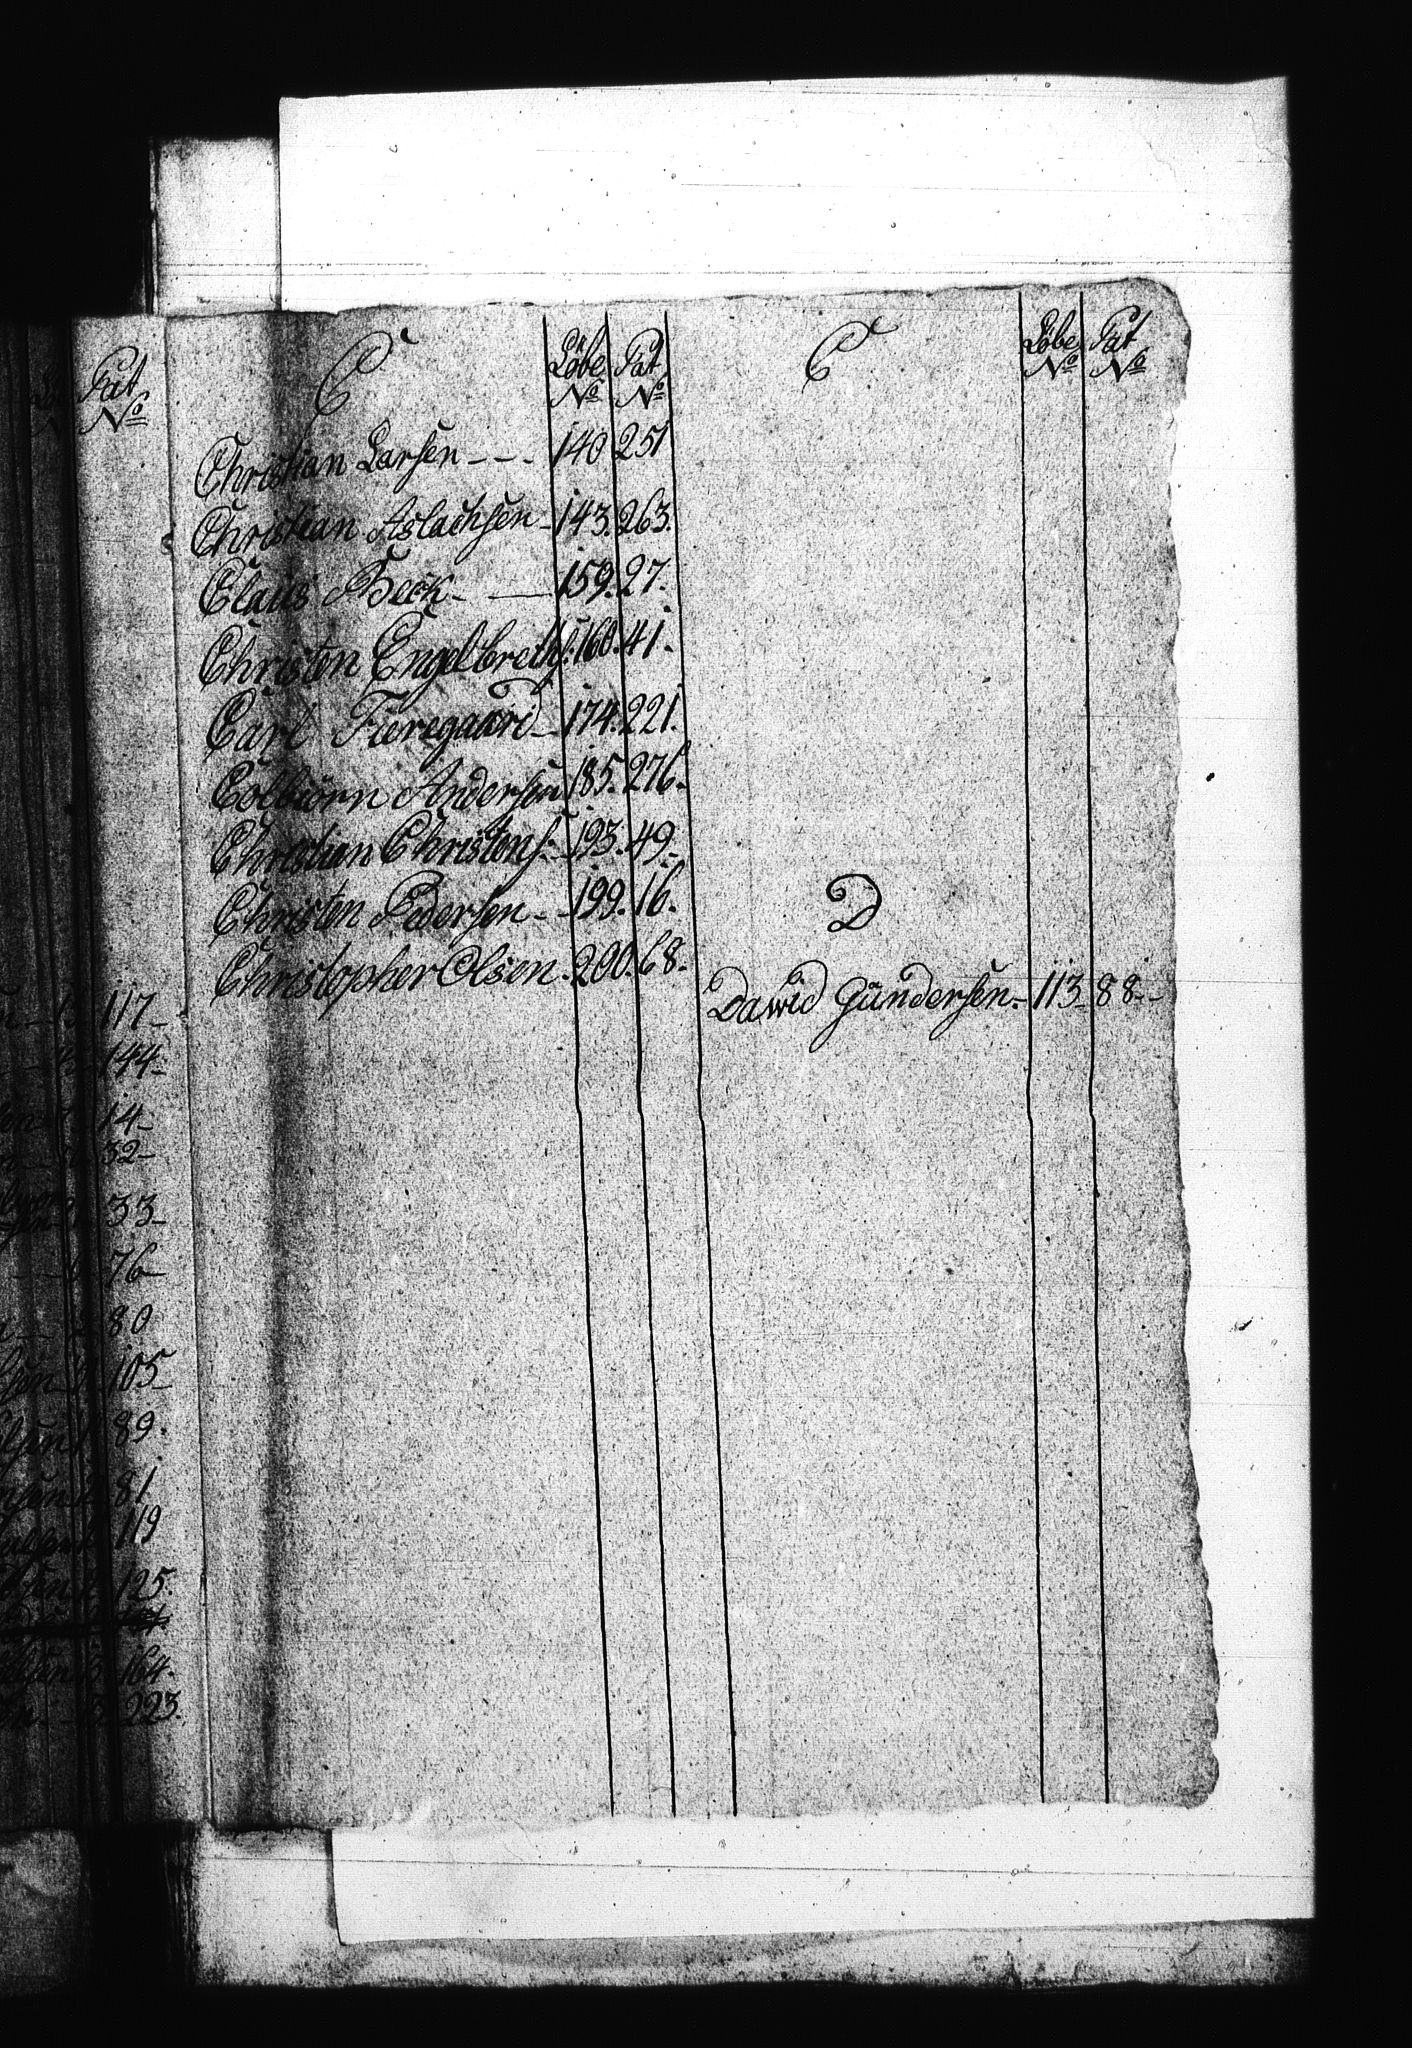 Pat
No
117
144
14
32
33
76
80
105
89
81
119
125
164
223
C Löbe No Pat No
Christian Larsen 140 251
Christian Aslachsen 143. 263.
Claus Beck 159. 27.
Christen Engelbreths: 160. 41.
Carl Fieregaard 174. 221.
Colbiörn Andersen 185. 276.
Christian Christens: 193. 49.
Christen Pedersen 199. 16.
Christopher Olsen. 200. 68.
C Löbe No Pat No
D
Dawid Gundersen 113 88